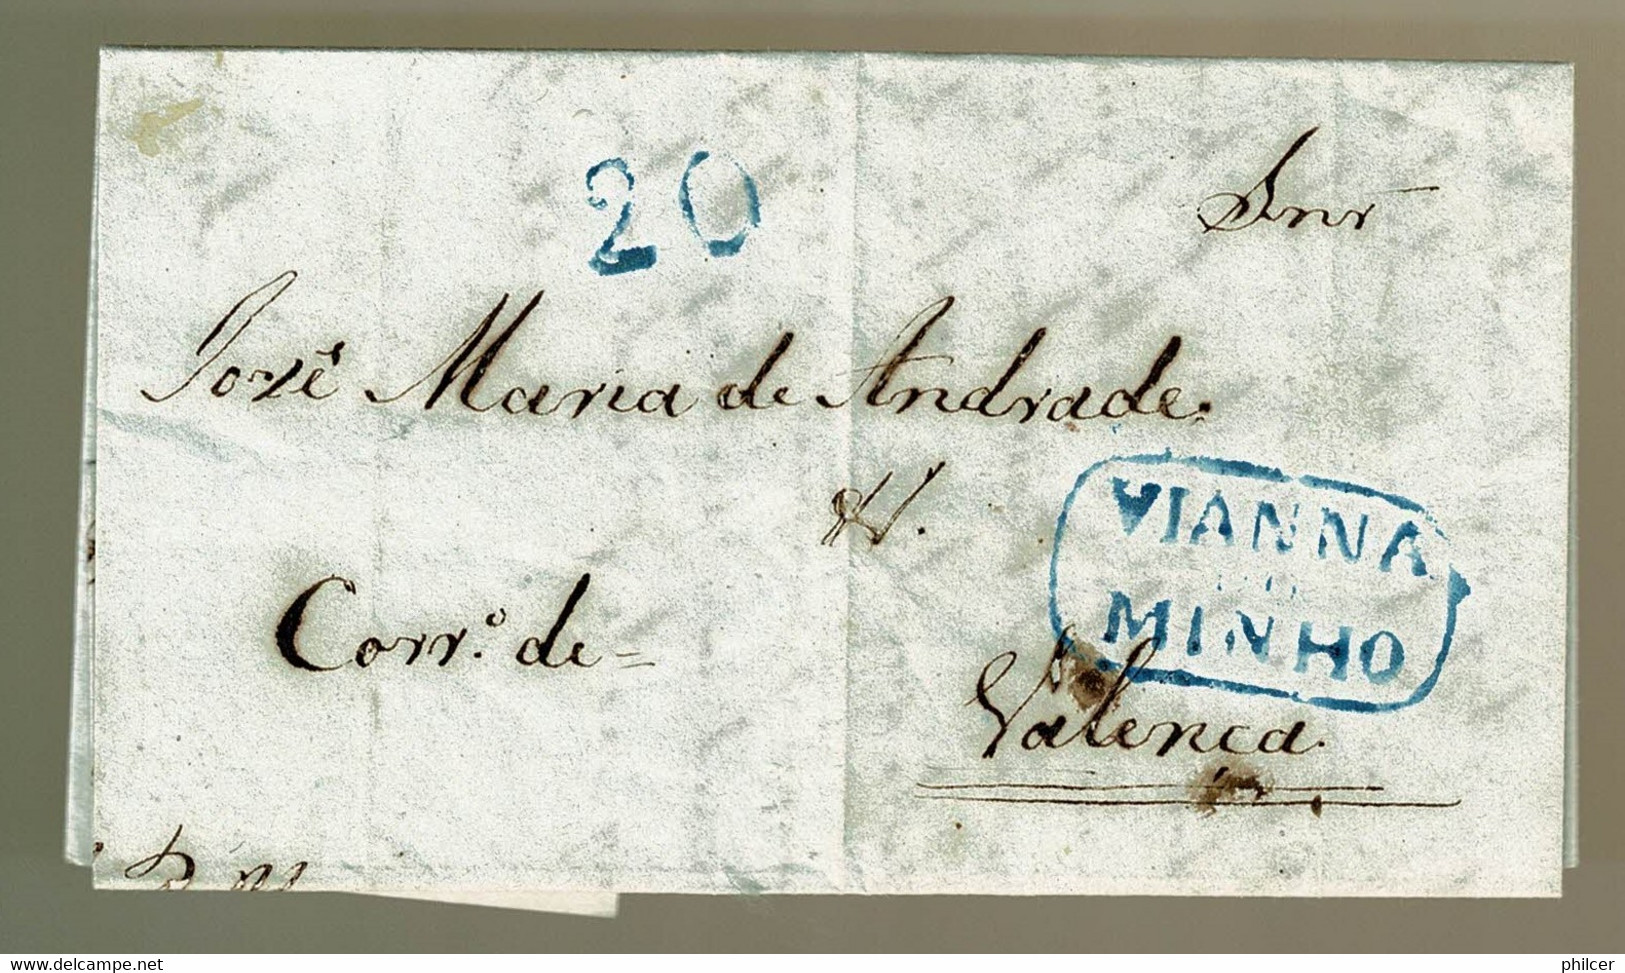 20
Snr
José Maria de Andrade.
VIANNA
DO
MINHO
Corr.º de=
Valença.
www.delcampe.net
philcer